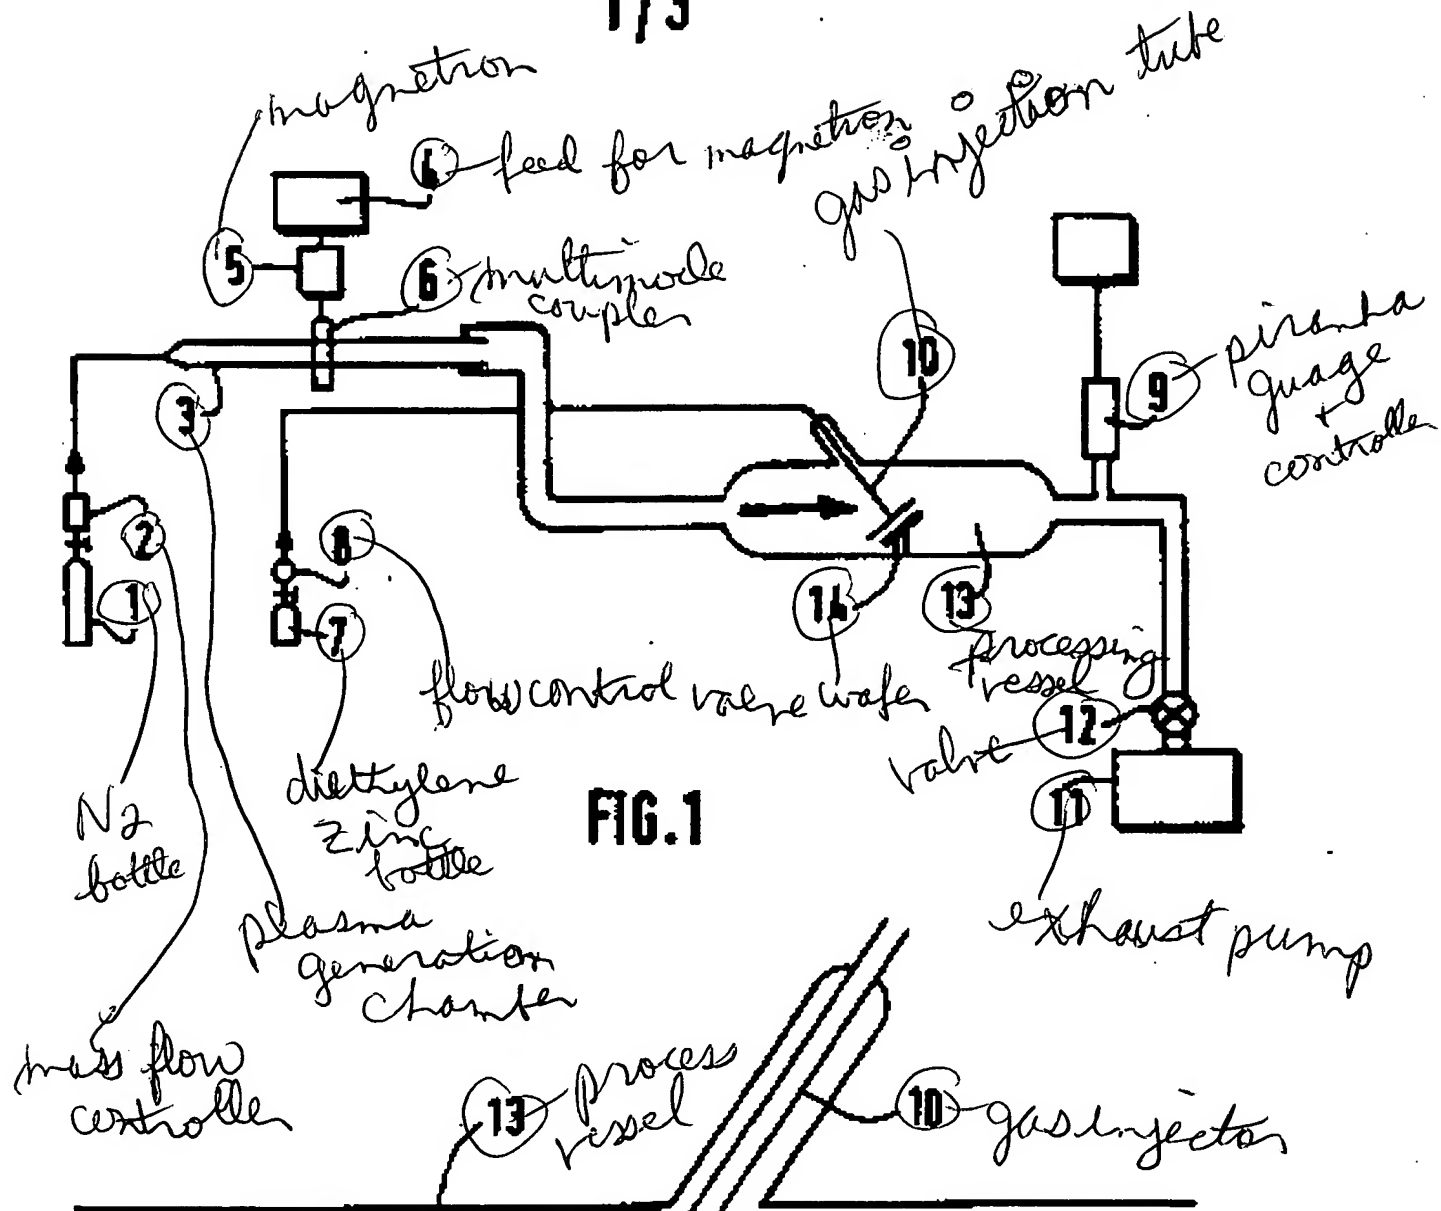 1/3
magnetron
4 feed for magnetron
gas injection tube
5
6 multimode
coupler
10
9 piranha
guage
+
controller
3
2
8
1
7
14
13
processing
vessel
flow control valve wafer
12
valve
11
diethylene
zinc
bottle
FIG.1
N2
bottle
exhaust pump
plasma
generation
chamber
mass flow
controller
13 process
vessel
10 gas injector